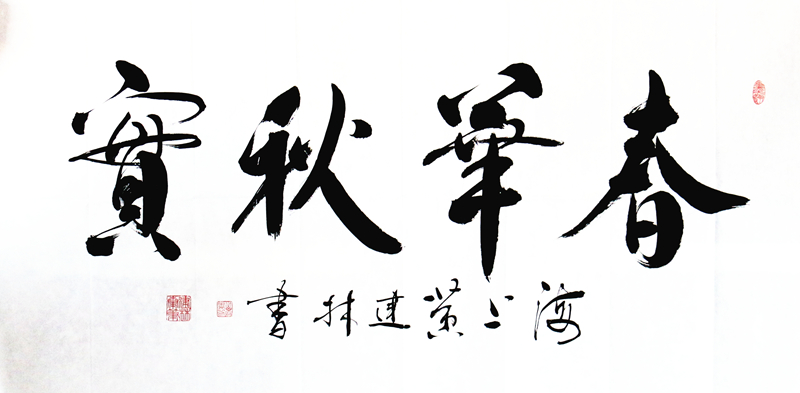 春華秋實
海上黃建林書